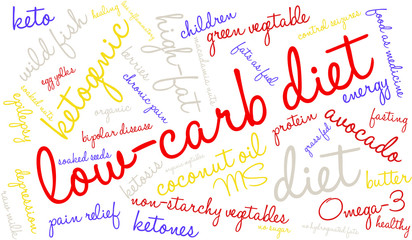 keto
healing the inflammatory
children
green vegtable
control seizures
food as medicine
wild fish
high-fat
fats as fuel
egg yolks
ketognic
berries
low-carb diet
energy
chronic pain
organic
epilepsy
bipolar disease
protein
grass fed
avocado
fasting
soaked seeds
ketosis
coconut oil
MS
diet
butter
depression
raw milk
pain relief
non-starchy vegtables
ketones
no sugar
Omega-3
healthy